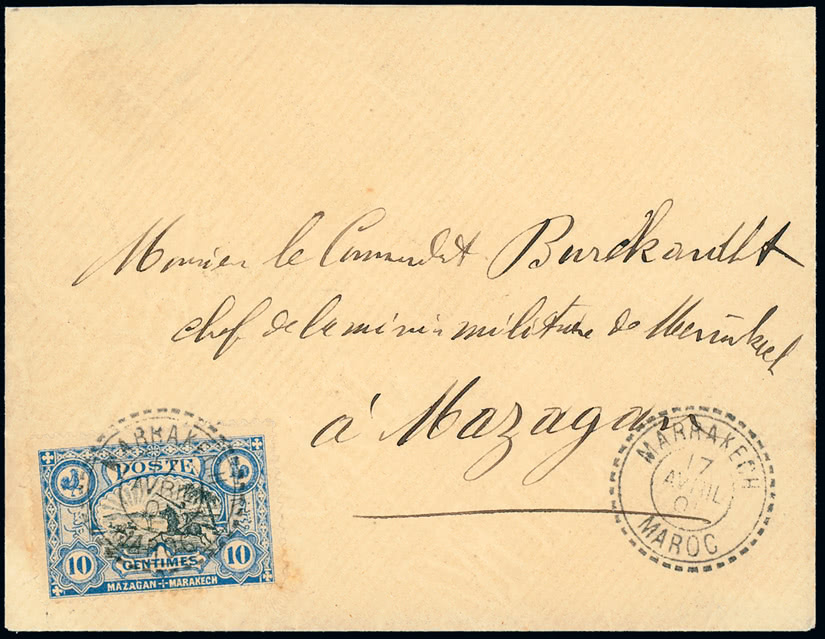 Monsieur le Commandt Burckhardt
chef de la mission militaire de Marrakech
à Mazagan
MARRAKECH
17
AVRIL
0
MAROC
MARRAKECH
AVRIL
0
POSTE
10 CENTIMES 10
MAZAGAN-MARAKECH